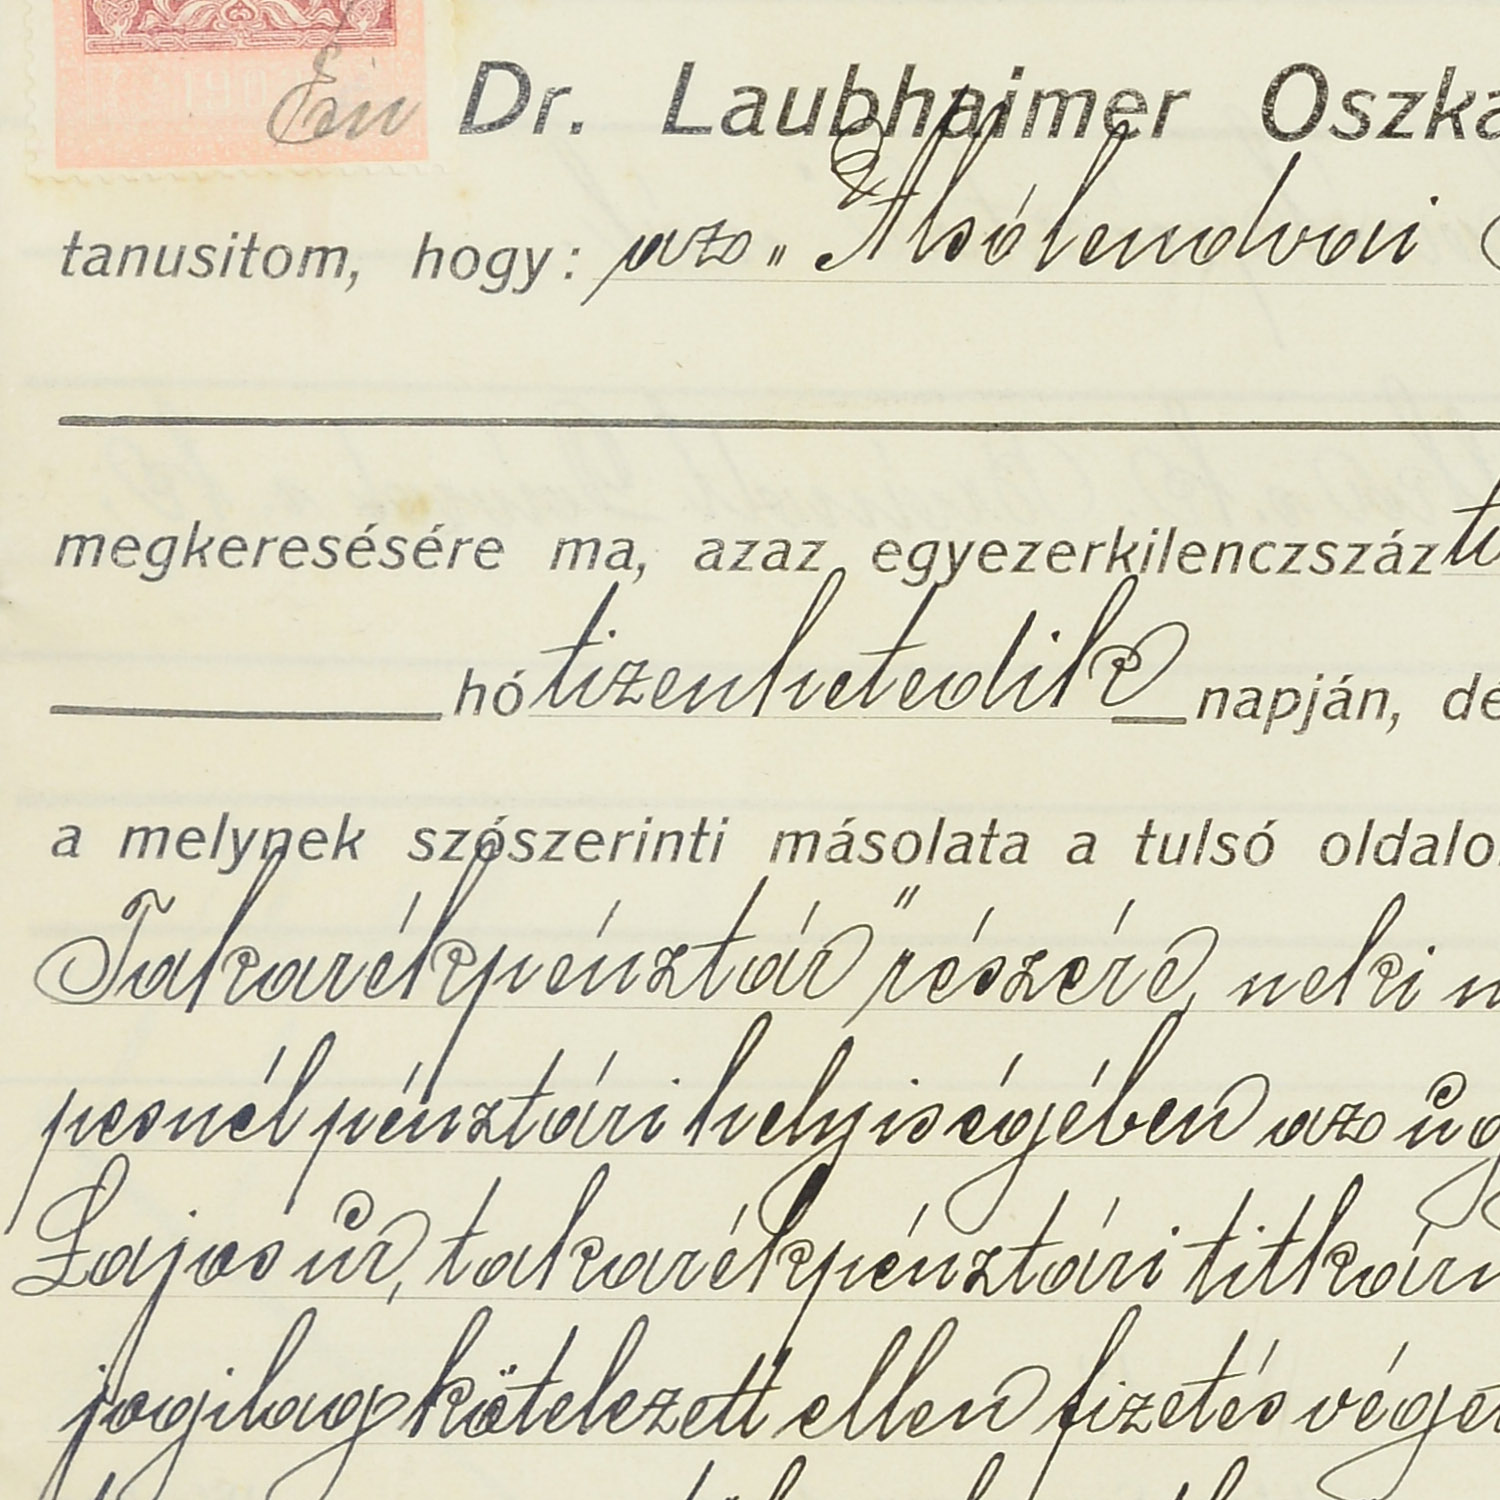 Én Dr. Laubhaimer Oszká
tanusitom, hogy: az „Alsólendvai
megkeresésére ma, azaz egyezerkilenczszáz
hó tizenhetedik napján, dé
a melynek szószerinti másolata a tulsó oldalo
Takarékpénztár" részére, neki
pesnél pénztári helyiségében az üg
Lajos úr, takarékpénztári titkárn
jogilag kötelezett ellen fizetés véget